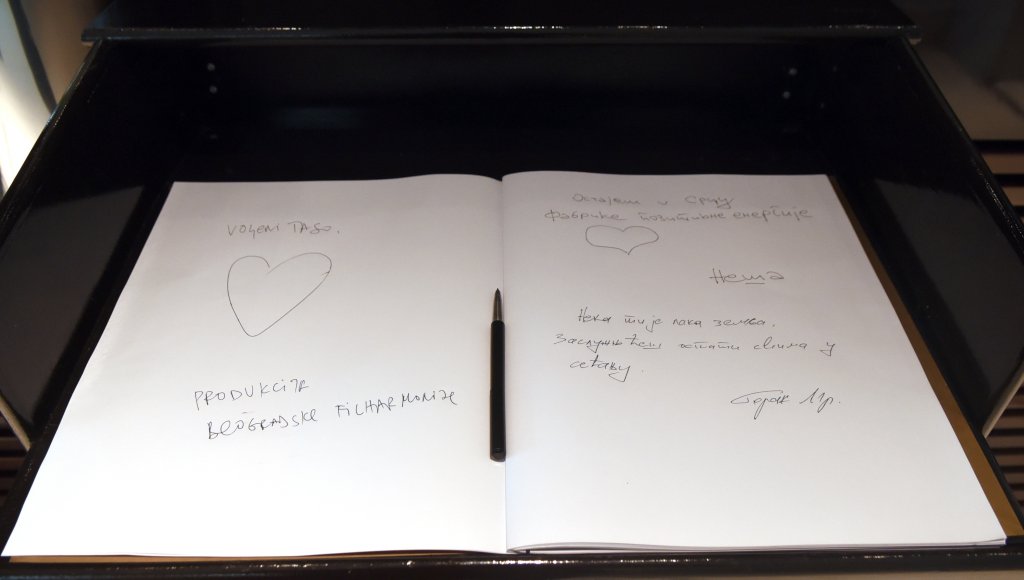 VOLJENI TASO,
PRODUKCIJA
BEOGRADSKE FILHARMONIJE
Остајеш у Срцу
фабрике позитивне енергије
Неша
Нека ти је лака земља.
остати свима у
сећању.
Горан Мр.